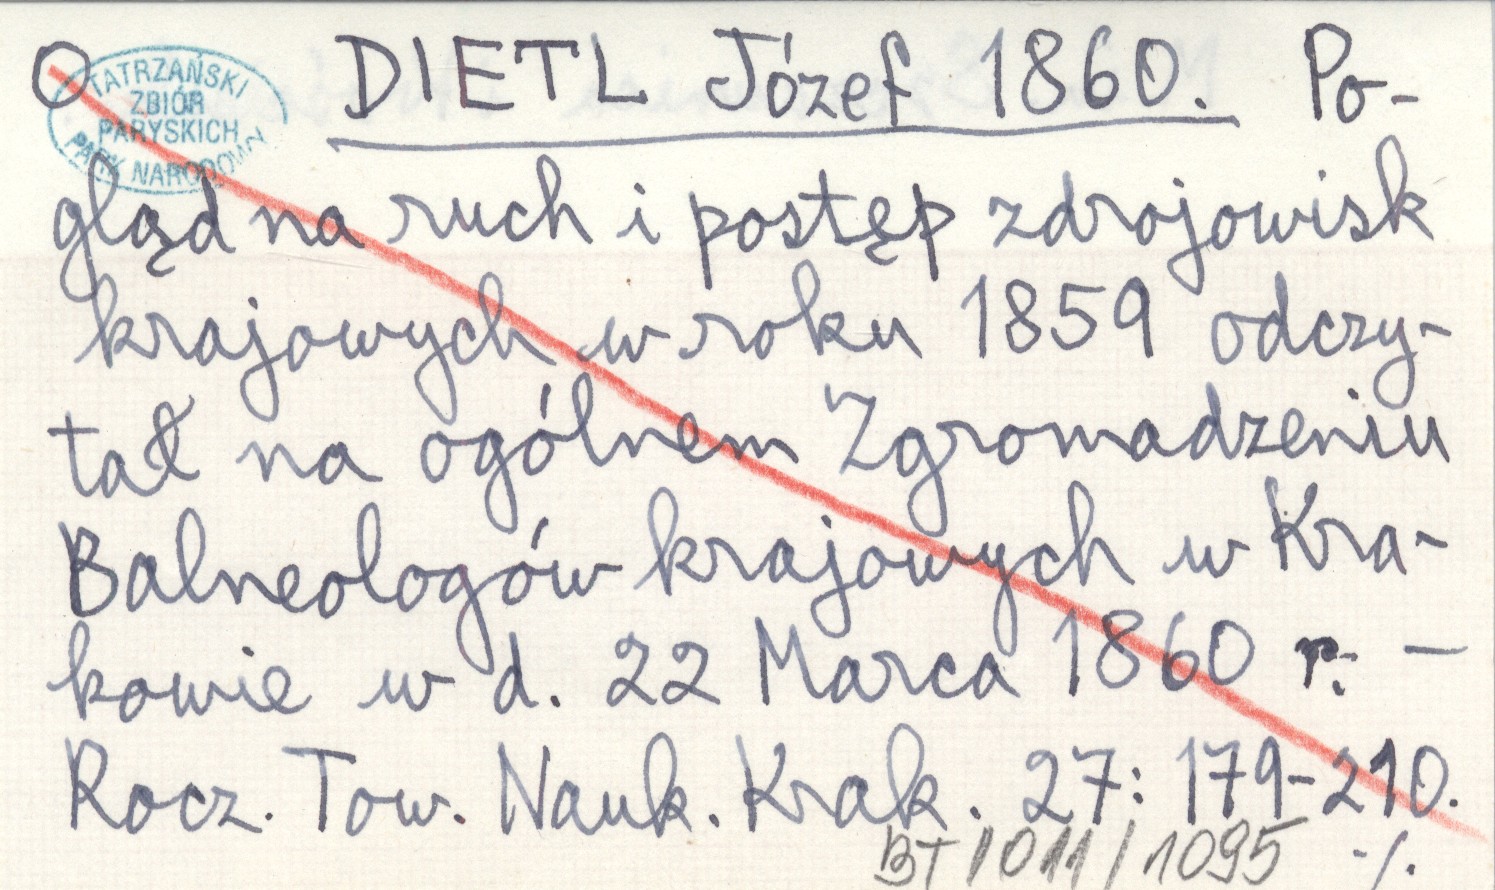 O
TATRZAŃSKI
ZBIÓR
PARYSKICH
PARK NARODOWY
DIETL Józef 1860. Po-
gląd na ruch i postęp zdrojowisk
krajowych w roku 1859 odczy-
tał na ogólnem Zgromadzeniu
Balneologów krajowych w Kra-
kowie w d. 22 Marca 1860 r. —
Rocz. Tow. Nauk. Krak. 27: 179-210.
BT 1011/1095 -/.